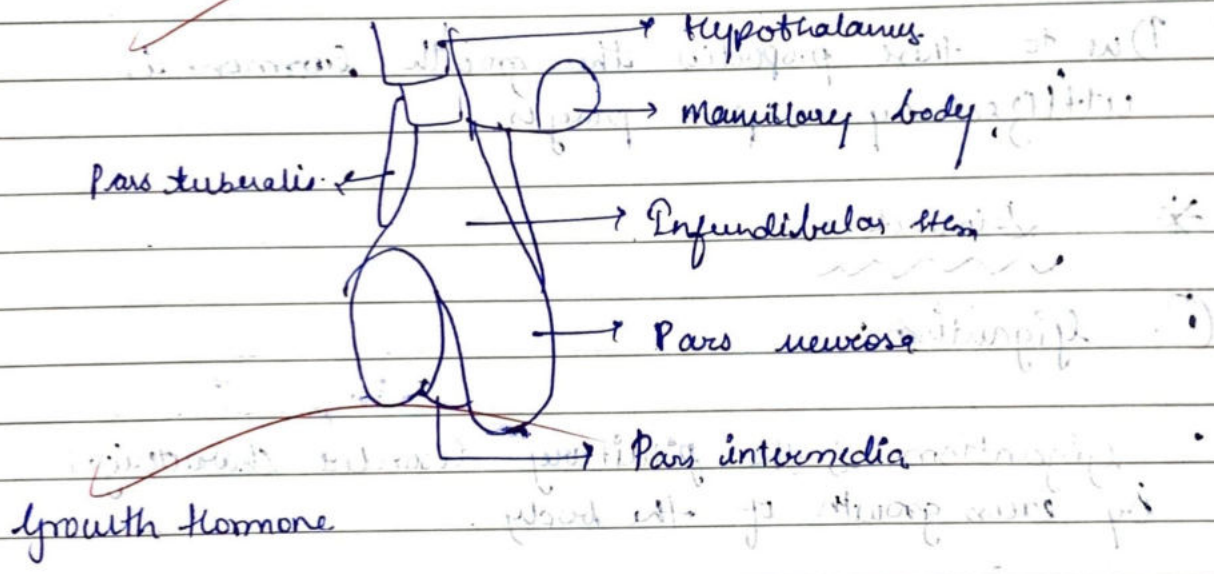 Hypothalamus
Mamillary body
Pars tuberalis
Infundibular stem
Pars nervosa
Pars intermedia
Growth Hormone